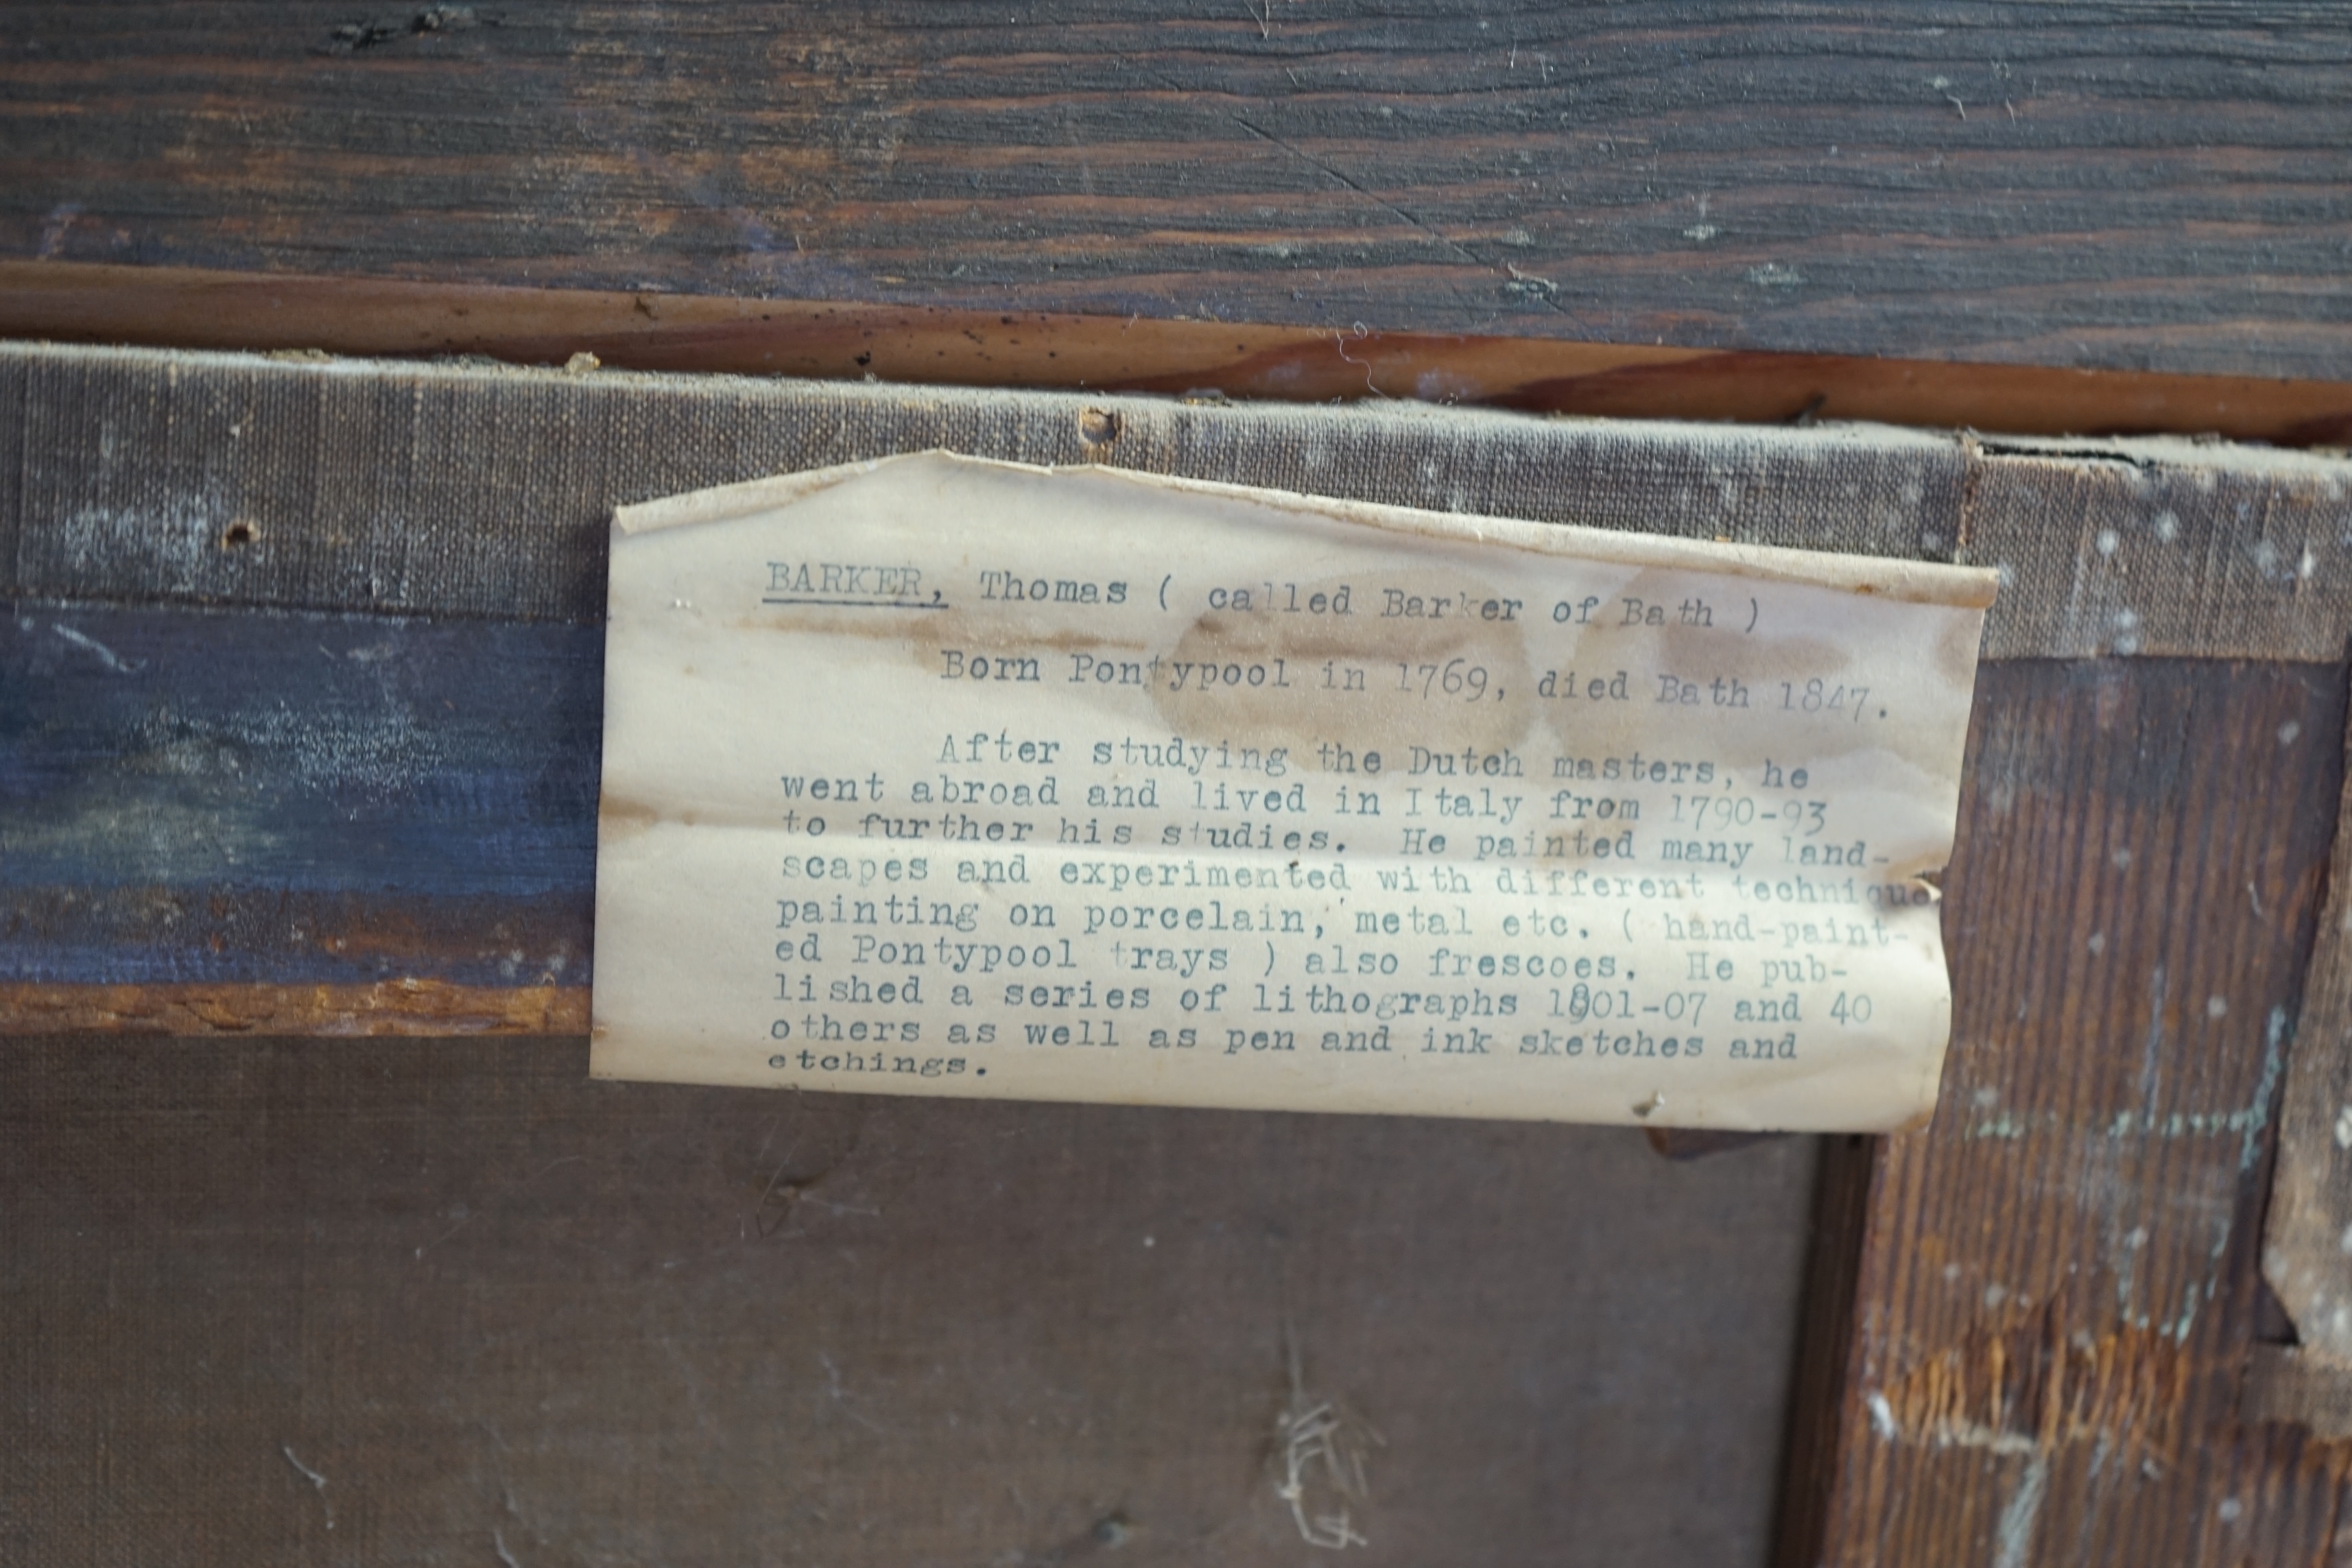 BARKER, Thomas ( called Barker of Bath )
Born Pontypool in 1769, died Bath 1847.
After studying the Dutch masters, he
went abroad and lived in Italy from 1790-93
to further his studies. He painted many land-
scapes and experimented with different technique
painting on porcelain, metal etc. ( hand-paint-
ed Pontypool trays ) also frescoes. He pub-
lished a series of lithographs 1801-07 and 40
others as well as pen and ink sketches and
etchings.